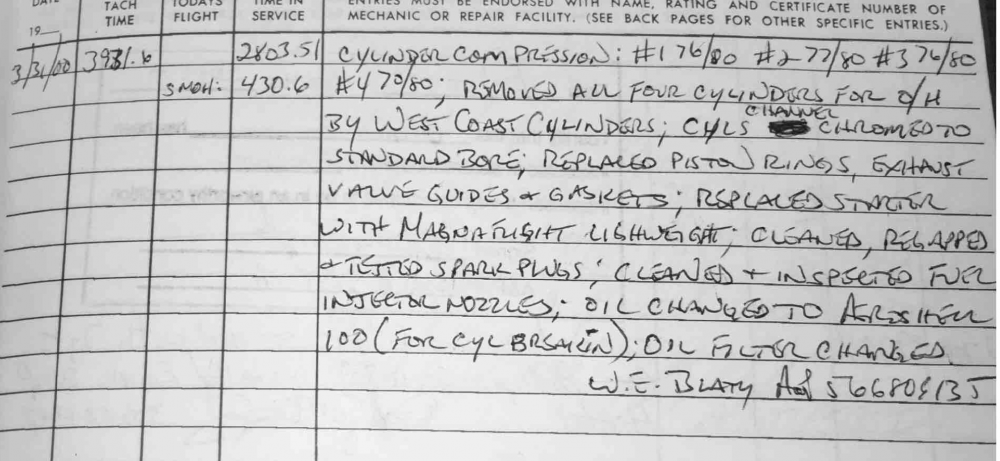 DATE TACH TIME TODAYS FLIGHT TIME IN SERVICE
ENTRIES MUST BE ENDORSED WITH NAME, RATING AND CERTIFICATE NUMBER OF
MECHANIC OR REPAIR FACILITY. (SEE BACK PAGES FOR OTHER SPECIFIC ENTRIES.)
19
3/31/00 3981.6 2803.51 CYLINDER COMPRESSION: #1 76/80 #2 77/80 #3 76/80
SMOH: 430.6 #4 70/80; REMOVED ALL FOUR CYLINDERS FOR O/H
BY WEST COAST CYLINDERS; CYLS CHANNEL CHROMED TO
STANDARD BORE; REPLACED PISTON RINGS, EXHAUST
VALVE GUIDES & GASKETS; REPLACED STARTER
WITH MAGNAFLIGHT LIGHWEIGHT; CLEANED, REGAPPED
& TESTED SPARK PLUGS; CLEANED + INSPECTED FUEL
INJECTOR NOZZLES; OIL CHANGED TO AEROSHELL
100 (FOR CYL BREAKIN); OIL FILTER CHANGED.
W.E. BLATY